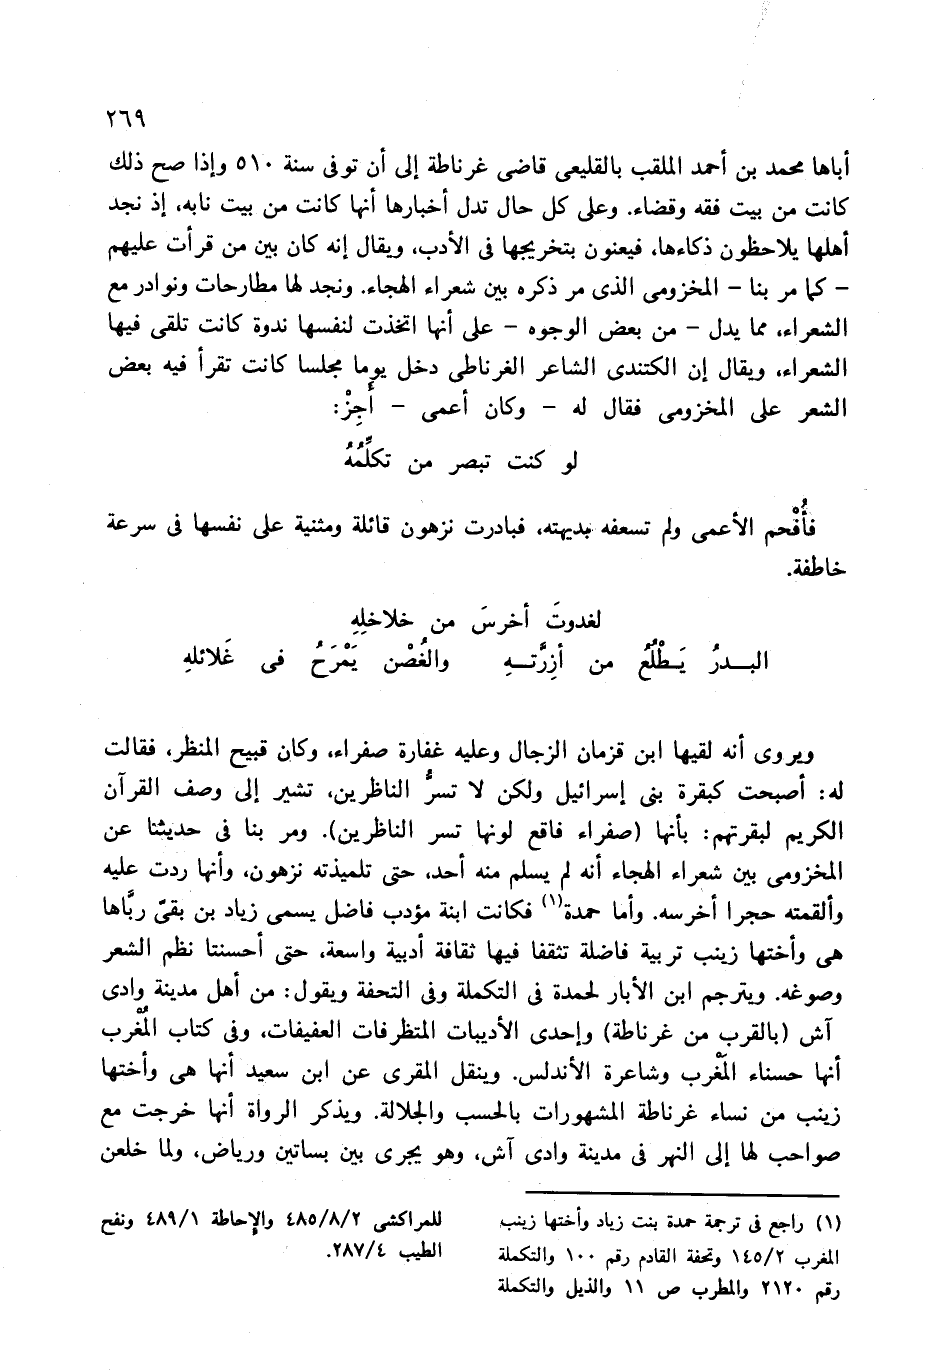 ٢٦٩
أباها محمد بن أحمد الملقب بالقليعى قاضى غرناطة إلى أن توفى سنة ٥١٠ وإذا صح ذلك
كانت من بيت فقه وقضاء. وعلى كل حال تدل أخبارها أنها كانت من بيت نابه، إذ نجد
أهلها يلاحظون ذكاءها، فيعنون بتخريجها فى الأدب، ويقال إنه كان بين من قرأت عليهم
– كما مر بنا – المخزومى الذى مر ذكره بين شعراء الهجاء. ونجد لها مطارحات ونوادر مع
الشعراء، مما يدل – من بعض الوجوه – على أنها اتخذت لنفسها ندوة كانت تلقى فيها
الشعراء، ويقال إن الكتندى الشاعر الغرناطى دخل يوما مجلسا كانت تقرأ فيه بعض
الشعر على المخزومى فقال له – وكان أعمى – أَجِزْ:
لو كنت تبصر من تكلِّمُهُ
فأُفْحم الأعمى ولم تسعفه بديهته، فبادرت نزهون قائلة ومثنية على نفسها فى سرعة
خاطفة.
لغدوتَ أخرسَ من خلاخلِهِ
البــدرُ يَطْلُعُ من أزِرَّتــهِ والغُصْن يَمْرَحُ فى غَلائلهِ
ويروى أنه لقيها ابن قزمان الزجال وعليه غفارة صفراء، وكان قبيح المنظر، فقالت
له: أصبحت كبقرة بنى إسرائيل ولكن لا تسرُّ الناظرين، تشير إلى وصف القرآن
الكريم لبقرتهم: بأنها (صفراء فاقع لونها تسر الناظرين). ومر بنا فى حديثنا عن
المخزومى بين شعراء الهجاء أنه لم يسلم منه أحد، حتى تلميذته نزهون، وأنها ردت عليه
وألقمته حجرا أخرسه. وأما حمدة(١) فكانت ابنة مؤدب فاضل يسمى زياد بن بقىّ ربَّاها
هى وأختها زينب تربية فاضلة تثقفا فيها ثقافة أدبية واسعة، حتى أحسنتا نظم الشعر
وصوغه. ويترجم ابن الأبار لحمدة فى التكملة وفى التحفة ويقول: من أهل مدينة وادى
آش (بالقرب من غرناطة) وإحدى الأديبات المتظرفات العفيفات، وفى كتاب المُغْرب
أنها حسناء المَغْرب وشاعرة الأندلس. وينقل المقرى عن ابن سعيد أنها هى وأختها
زينب من نساء غرناطة المشهورات بالحسب والجلالة. ويذكر الرواة أنها خرجت مع
صواحب لها إلى النهر فى مدينة وادى آش، وهو يجرى بين بساتين ورياض، ولما خلعن
(١) راجع فى ترجمة حمدة بنت زياد وأختها زينب
المغرب ١٤٥/٢ وتحفة القادم رقم ١٠٠ والتكملة
رقم ٢١٢٠ والمطرب ص ١١ والذيل والتكملة
للمراكشى ٤٨٥/٨/٢ والإحاطة ٤٨٩/١ ونفح
الطيب ٢٨٧/٤.